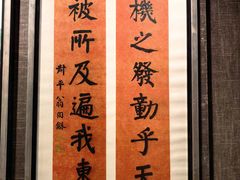 機之發動乎天
被所及遍我東
叔平翁同龢